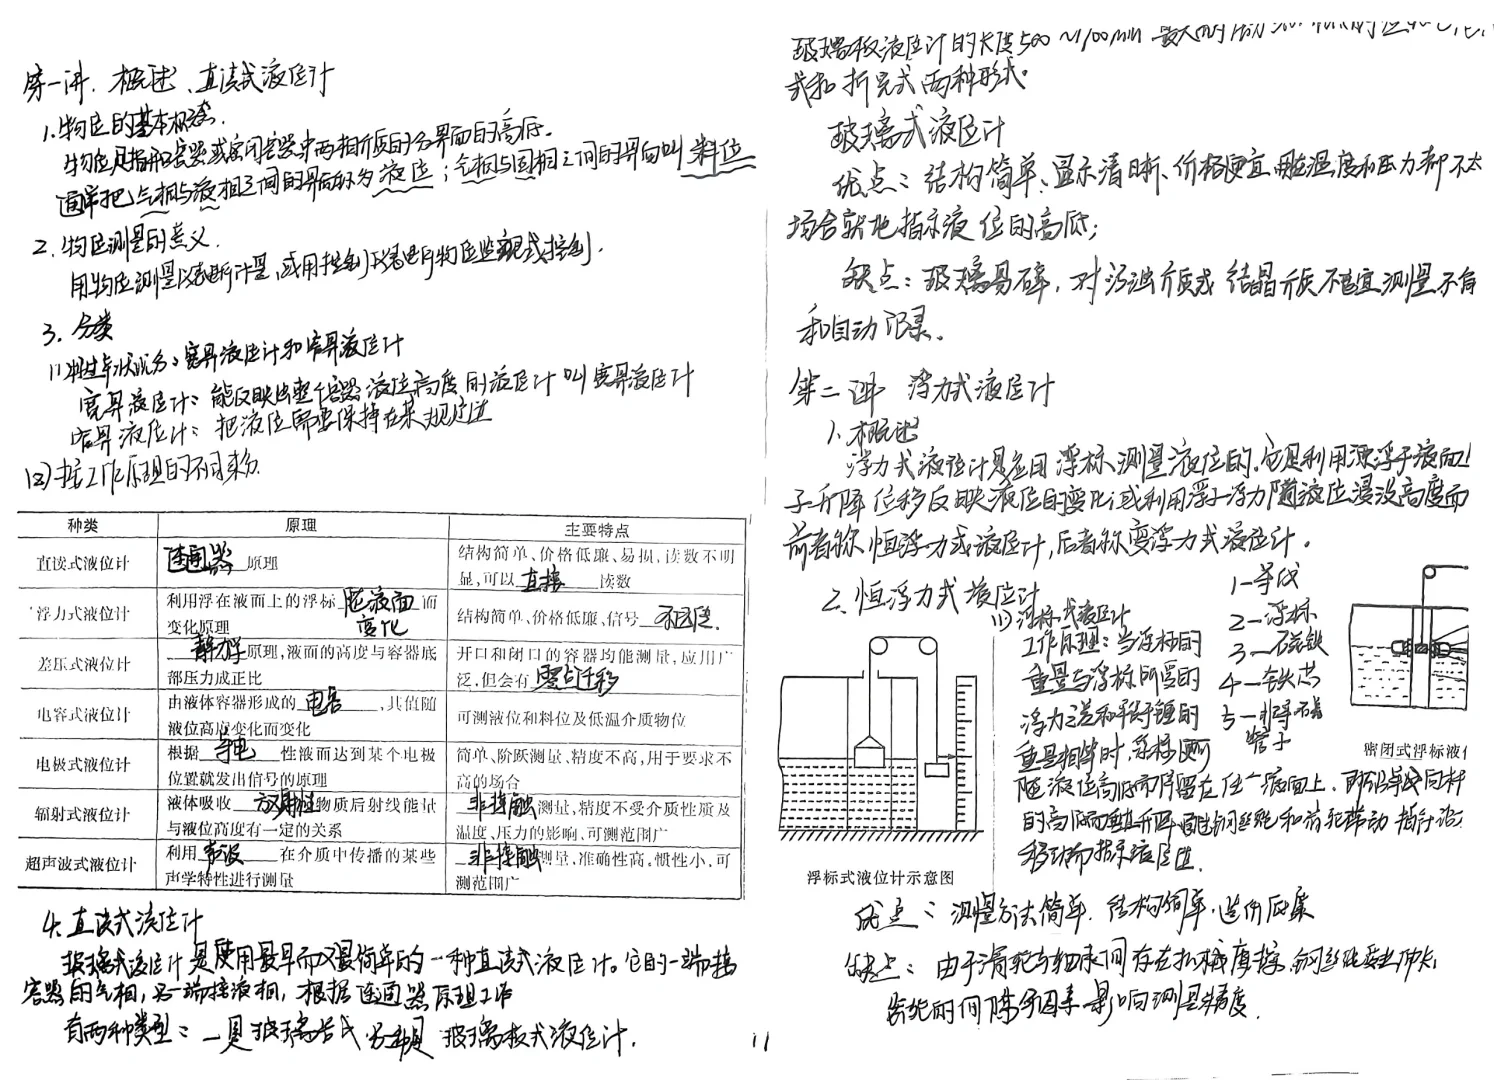 第一讲、概述、直读式液位计
1.物位的基本概念.
物位是指开口容器或密闭容器中两相介质的分界面的高低。
通常把气相与液相之间的界面称为液位；气相与固相之间的界面叫料位
2.物位测量的意义.
用物位测量以来进行计量,或用控制以来进行物位监视或控制.
3.分类
宽界液位计和窄界液位计
宽界液位计：能反映出整个容器液位高度的液位计叫宽界液位计
窄界液位计：把液位需要保持在某规定值
(2)按工作原理的不同来分
种类 原理 主要特点
直读式液位计 连通器 原理 结构简单、价格低廉、易损,读数不明显,可以 直接 读数
浮力式液位计 利用浮在液面上的浮标 随液面 而变化原理 变化 结构简单、价格低廉、信号 不远传.
差压式液位计 静力学 原理,液面的高度与容器底部压力成正比 开口和闭口的容器均能测量,应用广泛,但会有 零点迁移
电容式液位计 由液体容器形成的 电容 ,其值随液位高度变化而变化 可测液位和料位及低温介质物位
电极式液位计 根据 导电 性液面达到某个电极位置就发出信号的原理 简单、阶跃测量、精度不高,用于要求不高的场合
辐射式液位计 液体吸收 放射性 物质后射线能量与液位高度有一定的关系 非接触 测量,精度不受介质性质及温度、压力的影响、可测范围广
超声波式液位计 利用 声波 在介质中传播的某些声学特性进行测量 非接触 测量,准确性高,惯性小,可测范围广
4.直读式液位计
玻璃式液位计是使用最早而又最简单的一种直读式液位计。它的一端接
容器的气相,另一端接液相,根据连通器原理工作
有两种类型：一是玻璃管式,另一种是玻璃板式液位计.
玻璃板液位计的长度500~1700mm
式和折光式两种形式.
玻璃式液位计
优点：结构简单、显示清晰、价格便宜,用在温度和压力都不太
场合就地指示液位的高低;
缺点：玻璃易碎,对污浊介质或结晶介质不适宜测量不能
和自动记录.
第二讲 浮力式液位计
1.概述
浮力式液位计是应用浮标测量液位的.它是利用漂浮于液面上
子升降位移反映液位的变化;或利用浮子浮力随液位浸没高度而
前者称恒浮力式液位计,后者称变浮力式液位计.
2.恒浮力式液位计
(1)浮标式液位计
工作原理：当浮标的
重量与浮标所受的
浮力之差和平衡锤的
重量相等时,浮标便可
随液位高低而停留在任一液面上,
的高低
移动而指示液位.
1—导线
2—浮标
3—磁铁
4—铁芯
5—非导磁
管子
密闭式浮标液
浮标式液位计示意图
优点：测量方法简单,结构简单,造价低廉
缺点：由于滑轮与轴承间存在机械摩擦,钢丝绳受热伸长,
齿轮的间隙等因素影响测量精度.
11